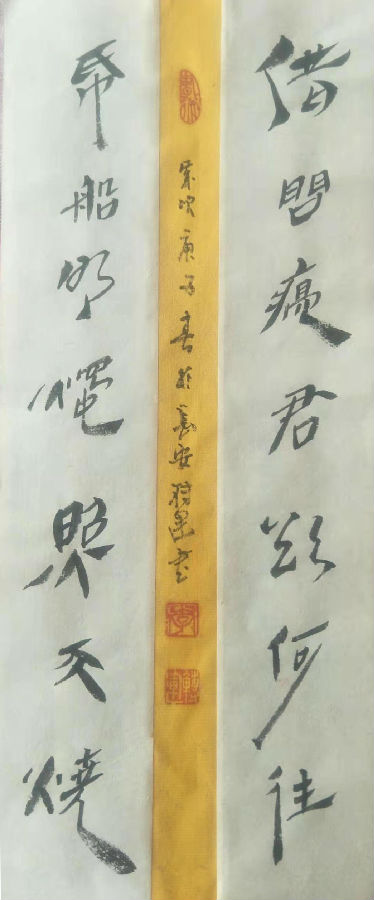 借问瘟君欲何往
帋船明燭照天燒
歲次庚子春於長安 書